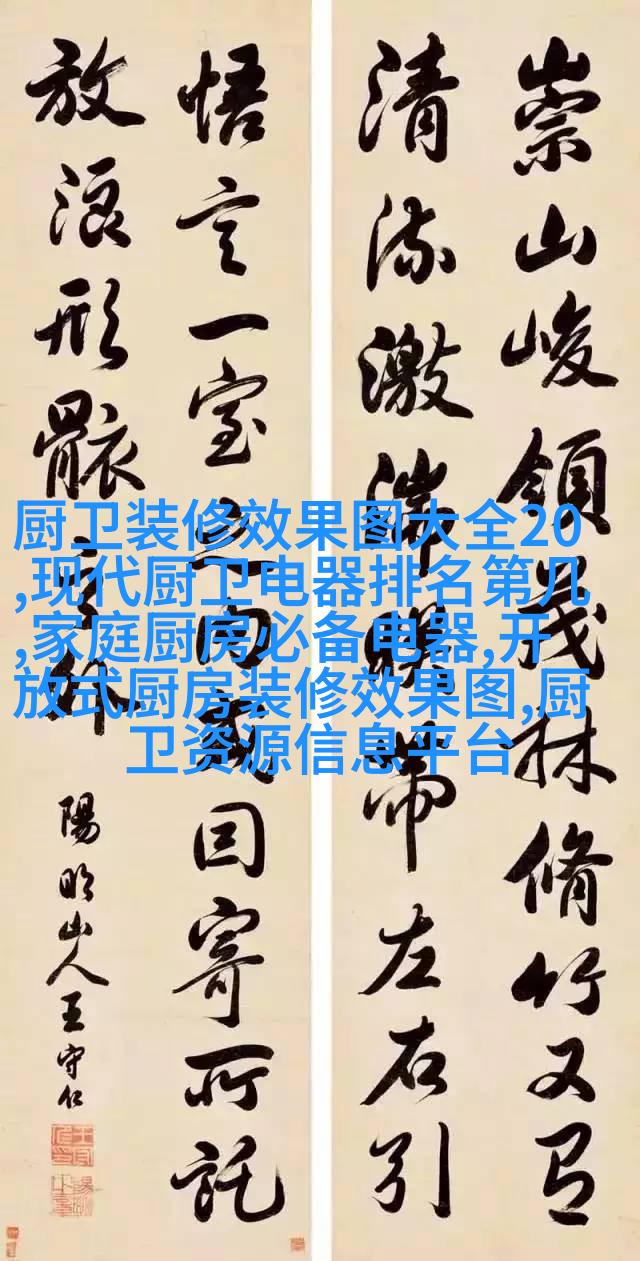 崇山峻領茂林脩竹又有
清流激湍暎帶左右引
悟言一室之内或因寄所託
放浪形骸之外
陽明山人王守仁
厨卫装修效果图大全20
,现代厨卫电器排名第几
,家庭厨房必备电器,开
放式厨房装修效果图,厨
卫资源信息平台